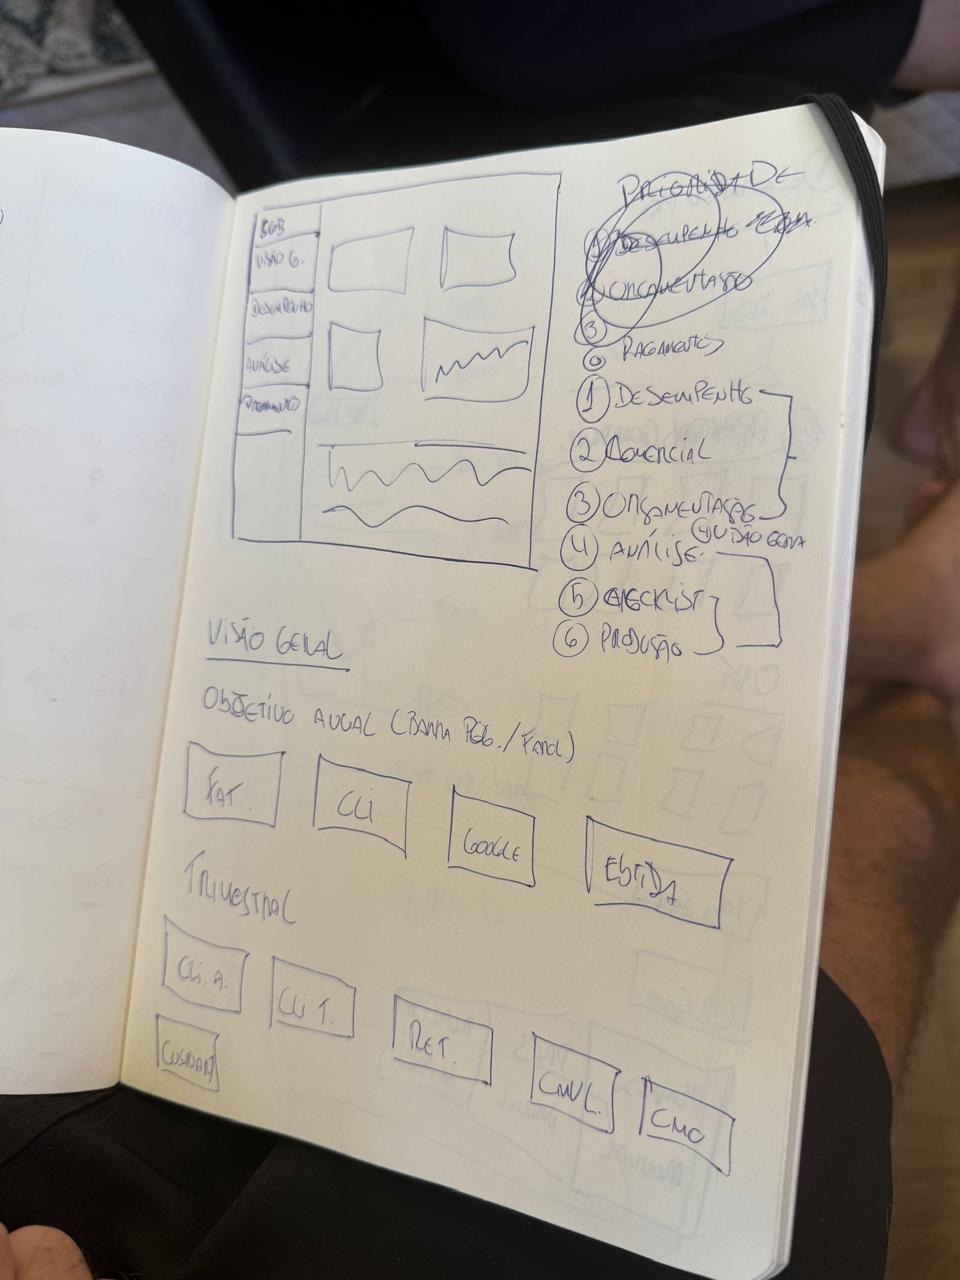 VISÃO G.
DESEMPENHO
ANÁLISE
PRIORIDADE
① DESEMPENHO
② ORÇAMENTAÇÃO
③
0 PAGAMENTOS
① DESEMPENHO
② COMERCIAL
③ ORÇAMENTAÇÃO
④ VISÃO GERAL
④ ANÁLISE
⑤ CHECKLIST
⑥ PRODUÇÃO
VISÃO GERAL
OBJETIVO ANUAL (BARRA PEG./FAROL)
FAT.
CLI
GOOGLE
EBITDA
TRIMESTRAL
CLI. A.
CLI T.
RET.
CMVL.
CMO